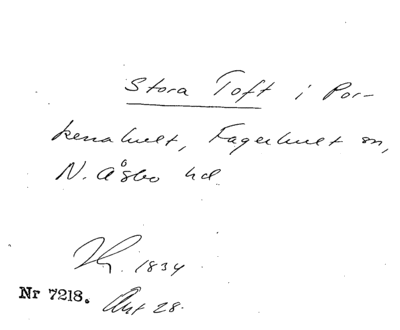 Stora Toft i Por-
kenahult, Fagerhult sn,
N. Åsbo hd.
1834
Nr 7218. Akt 28.